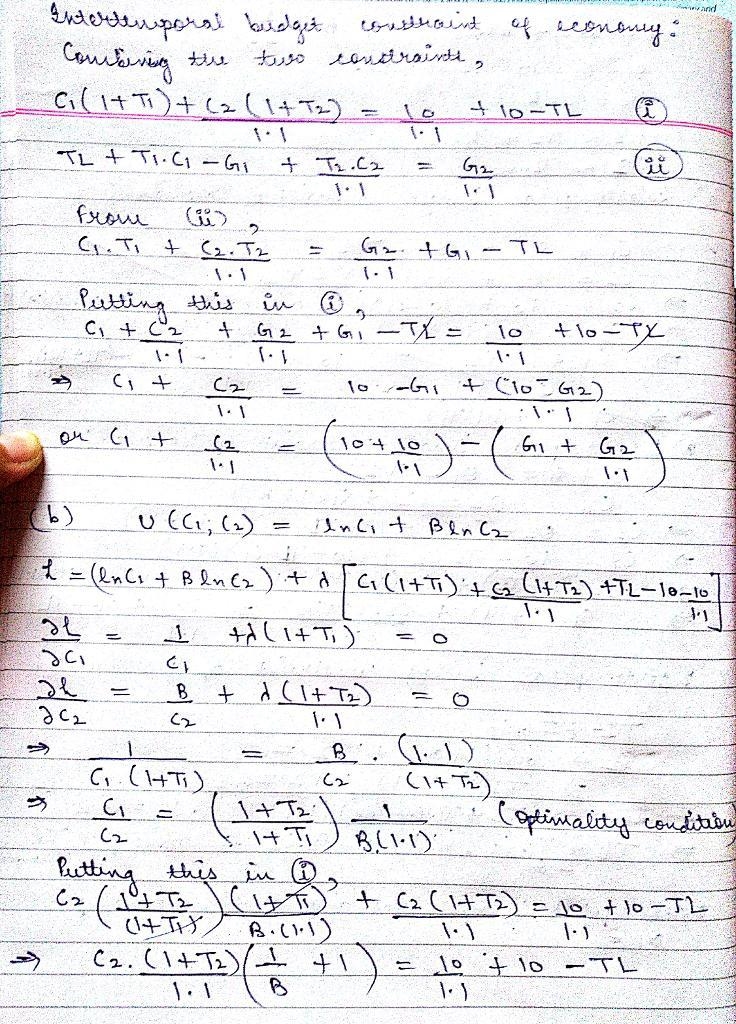 Intertemporal budget constraint of economy:
Combining the two constraints,
C₁(1+T₁) + C₂(1+T₂)/1.1 = 10/1.1 + 10 - TL (i)
TL + T₁.C₁ - G₁ + T₂.C₂/1.1 = G₂/1.1 - (ii)
From (ii),
C₁.T₁ + C₂.T₂/1.1 = G₂/1.1 + G₁ - TL
Putting this in (i),
C₁ + C₂/1.1 + G₂/1.1 + G₁ - TL = 10/1.1 + 10 - TL
⇒ C₁ + C₂/1.1 = 10 - G₁ + (10 - G₂)/1.1
or C₁ + C₂/1.1 = (10 + 10/1.1) - (G₁ + G₂/1.1)
(b) U(C₁, C₂) = lnC₁ + BlnC₂
L = (lnC₁ + BlnC₂) + λ[C₁(1+T₁) + C₂(1+T₂)/1.1 + TL - 10 - 10/1.1]
∂L/∂C₁ = 1/C₁ + λ(1+T₁) = 0
∂L/∂C₂ = B/C₂ + λ(1+T₂)/1.1 = 0
⇒ 1/C₁.(1+T₁) = B/C₂ . (1.1)/(1+T₂)
⇒ C₁/C₂ = (1+T₂/1+T₁) 1/B(1.1) (optimality condition)
Putting this in (i),
C₂(1+T₂/(1+T₁))(1+T₁)/B.(1.1) + C₂(1+T₂)/1.1 = 10/1.1 + 10 - TL
⇒ C₂.(1+T₂)/1.1 (1/B + 1) = 10/1.1 + 10 - TL